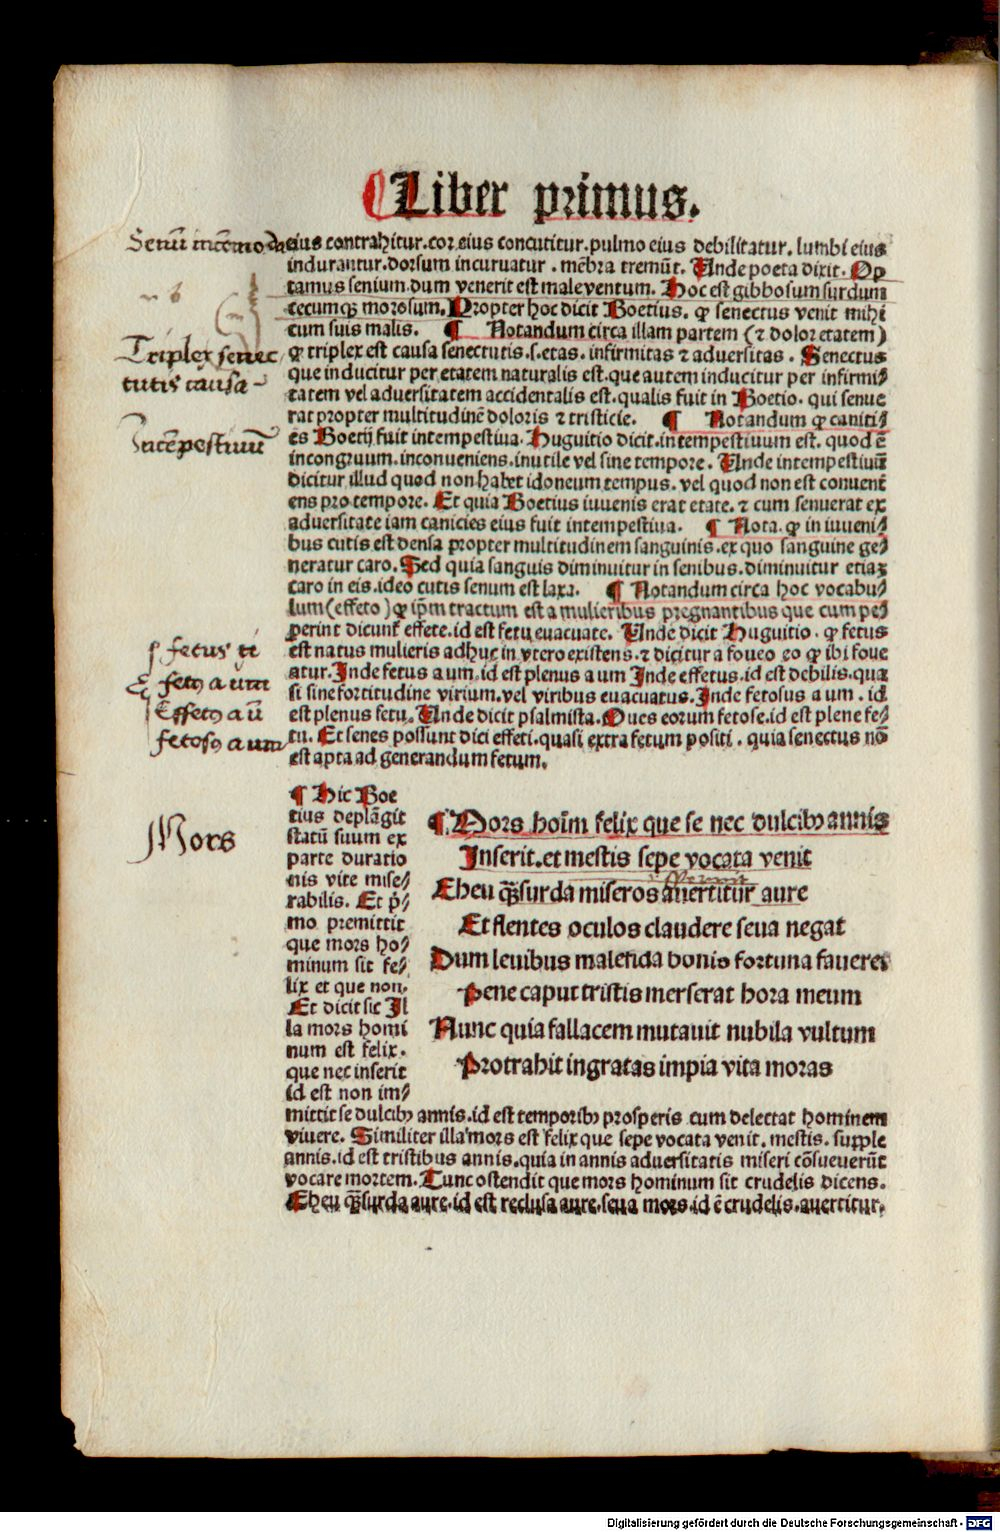 Liber primus.
eius contrahitur.cor eius concutitur.pulmo eius debilitatur. lumbi eius
indurantur.dorsum incuruatur . mēbra tremūt. Unde poeta dixit. Op
tamus senium.dum venerit est maleventum. Hoc est gibbosum surdum
cecumqꝫ morosum. Propter hoc dicit Boetius. ꝙ senectus venit mihi
cum suis malis. ¶ Notandum circa illam partem (ꝛ dolor etatem)
ꝙ triplex est causa senectutis.s.etas. infirmitas ꝛ aduersitas . Senectus
que inducitur per etatem naturalis est.que autem inducitur per infirmi⸗
tatem vel aduersitatem accidentalis est.qualis fuit in Boetio. qui senue
rat propter multitudinē doloris ꝛ tristicie. ¶ Notandum ꝙ caniti⸗
es Boetij fuit intempestiua. Huguitio dicit.intempestiuum est. quod ē
incongruum.inconueniens.inutile vel sine tempore. Unde intempestiuū
dicitur illud quod non habet idoneum tempus. vel quod non est conueni
ens pro tempore. Et quia Boetius iuuenis erat etate. ꝛ cum senuerat ex
aduersitate iam canicies eius fuit intempestiua. ¶ Nota. ꝙ in iuueni⸗
bus cutis est densa propter multitudinem sanguinis.ex quo sanguine ge⸗
neratur caro. Sed quia sanguis diminuitur in senibus.diminuitur etiaꝫ
caro in eis.ideo cutis senum est laxa. ¶ Notandum circa hoc vocabu⸗
lum (effeto) ꝙ ip̄m tractum est a mulieribus pregnantibus que cum pe⸗
perint dicunt̄ effete.id est fetu euacuate. Unde dicit Huguitio . ꝙ fetus
est natus mulieris adhuc in vtero existens.ꝛ dicitur a foueo eo ꝙ ibi foue
atur. Inde fetus a um.id est plenus a um Inde effetus.id est debilis.qua
si sine fortitudine virium.vel viribus euacuatus. Inde fetosus a um . id
est plenus fetu. Unde dicit psalmista. Oues eorum fetose.id est plene fe⸗
tu. Et senes possunt dici effeti.quasi extra fetum positi . quia senectus nō
est apta ad generandum fetum.
Senū incōmoda
Triplex senec
tutis causa
Intēpestiuū
fetus ti
fetꝯ a um
Effetꝯ a ū
fetosꝯ a um
Mors
¶ Hic Boe
tius deplāgit
statū suum ex
parte duratio
nis vite mise⸗
rabilis. Et p̄⸗
mo premittit
que mors ho⸗
minum sit fe⸗
lix et que non.
Et dicit sic Il
la mors homi
num est felix.
que nec inserit
id est non im⸗
¶ Mors hoīm felix que se nec dulcibꝫ annis
Inserit.et mestis sepe vocata venit
Eheu q̄ꝫ surda miseros auertitur aure
Et flentes oculos claudere seua negat
Dum leuibus malefida bonis fortuna faueret
Pene caput tristis merserat hora meum
Nunc quia fallacem mutauit nubila vultum
Protrahit ingratas impia vita moras
mittit se dulcibꝫ annis.id est temporibꝫ prosperis cum delectat hominem
viuere. Similiter illa mors est felix que sepe vocata venit. mestis. supple
annis.id est tristibus annis.quia in annis aduersitatis miseri cōsueuerūt
vocare mortem. Tunc ostendit que mors hominum sit crudelis dicens.
Eheu q̄ꝫ surda aure.id est reclusa aure.seua mors.id ē crudelis.auertitur.
Digitalisierung gefördert durch die Deutsche Forschungsgemeinschaft - DFG